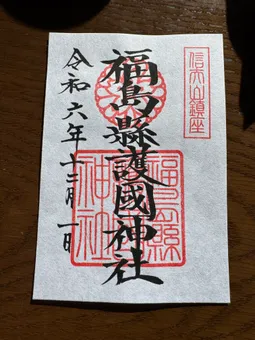 信夫山鎮座
福島縣護國神社
令和六年十二月一日
福島縣
神社